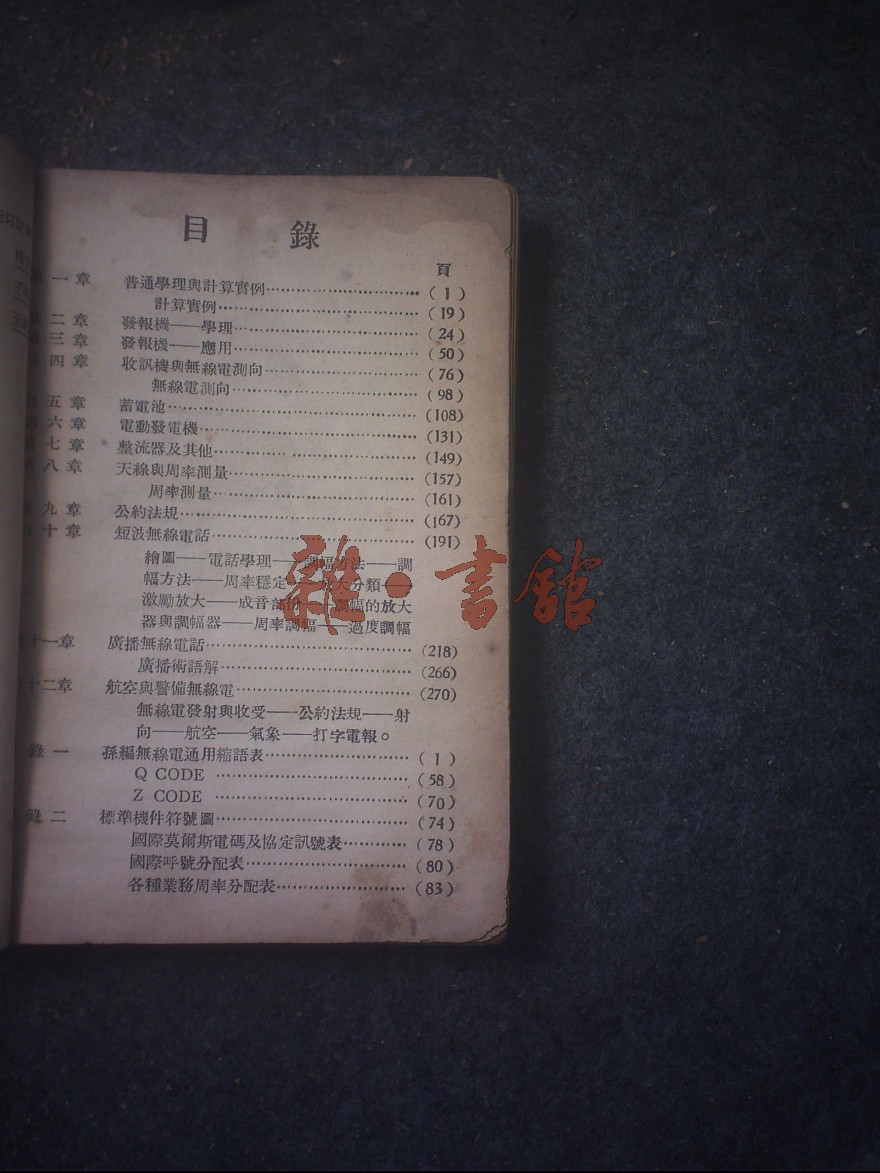 目錄
頁
第一章 普通學理與計算實例 (1)
計算實例 (19)
第二章 發報機——學理 (24)
第三章 發報機——應用 (50)
第四章 收訊機與無線電測向 (76)
無線電測向 (98)
第五章 蓄電池 (108)
第六章 電動發電機 (131)
第七章 整流器及其他 (149)
第八章 天線與周率測量 (157)
周率測量 (161)
第九章 公約法規 (167)
第十章 短波無線電話 (191)
繪圖——電話學理——調幅方法——調
幅方法——周率穩定——放大分類——
激勵放大——成音部份——調幅的放大
器與調幅器——周率調幅——過度調幅
十一章 廣播無線電話 (218)
廣播術語解 (266)
十二章 航空與警備無線電 (270)
無線電發射與收受——公約法規——射
向——航空——氣象——打字電報。
錄一 孫編無線電通用縮語表 (1)
Q CODE (58)
Z CODE (70)
錄二 標準機件符號圖 (74)
國際莫爾斯電碼及協定訊號表 (78)
國際呼號分配表 (80)
各種業務周率分配表 (83)
雜·書館